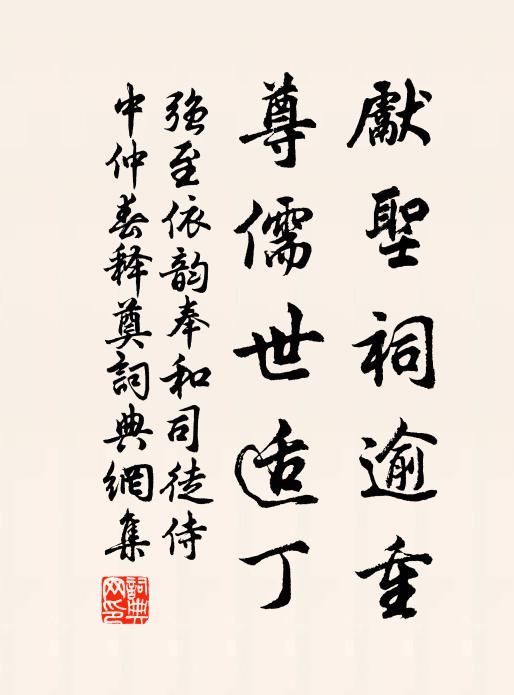 獻聖祠逾重
尊儒世适丁
強至依韵奉和司徒侍
中仲春释奠詞典網集
詞典網印